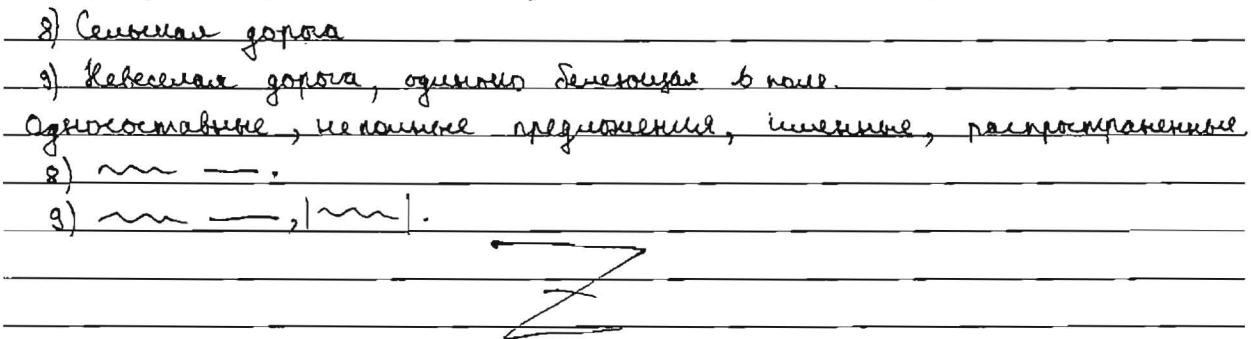 8) Сельская дорога
9) Невеселая дорога, одиноко белеющая в поле.
Односоставные, неполные предложения, именные, распространенные
8) .
9) , | | .
Z